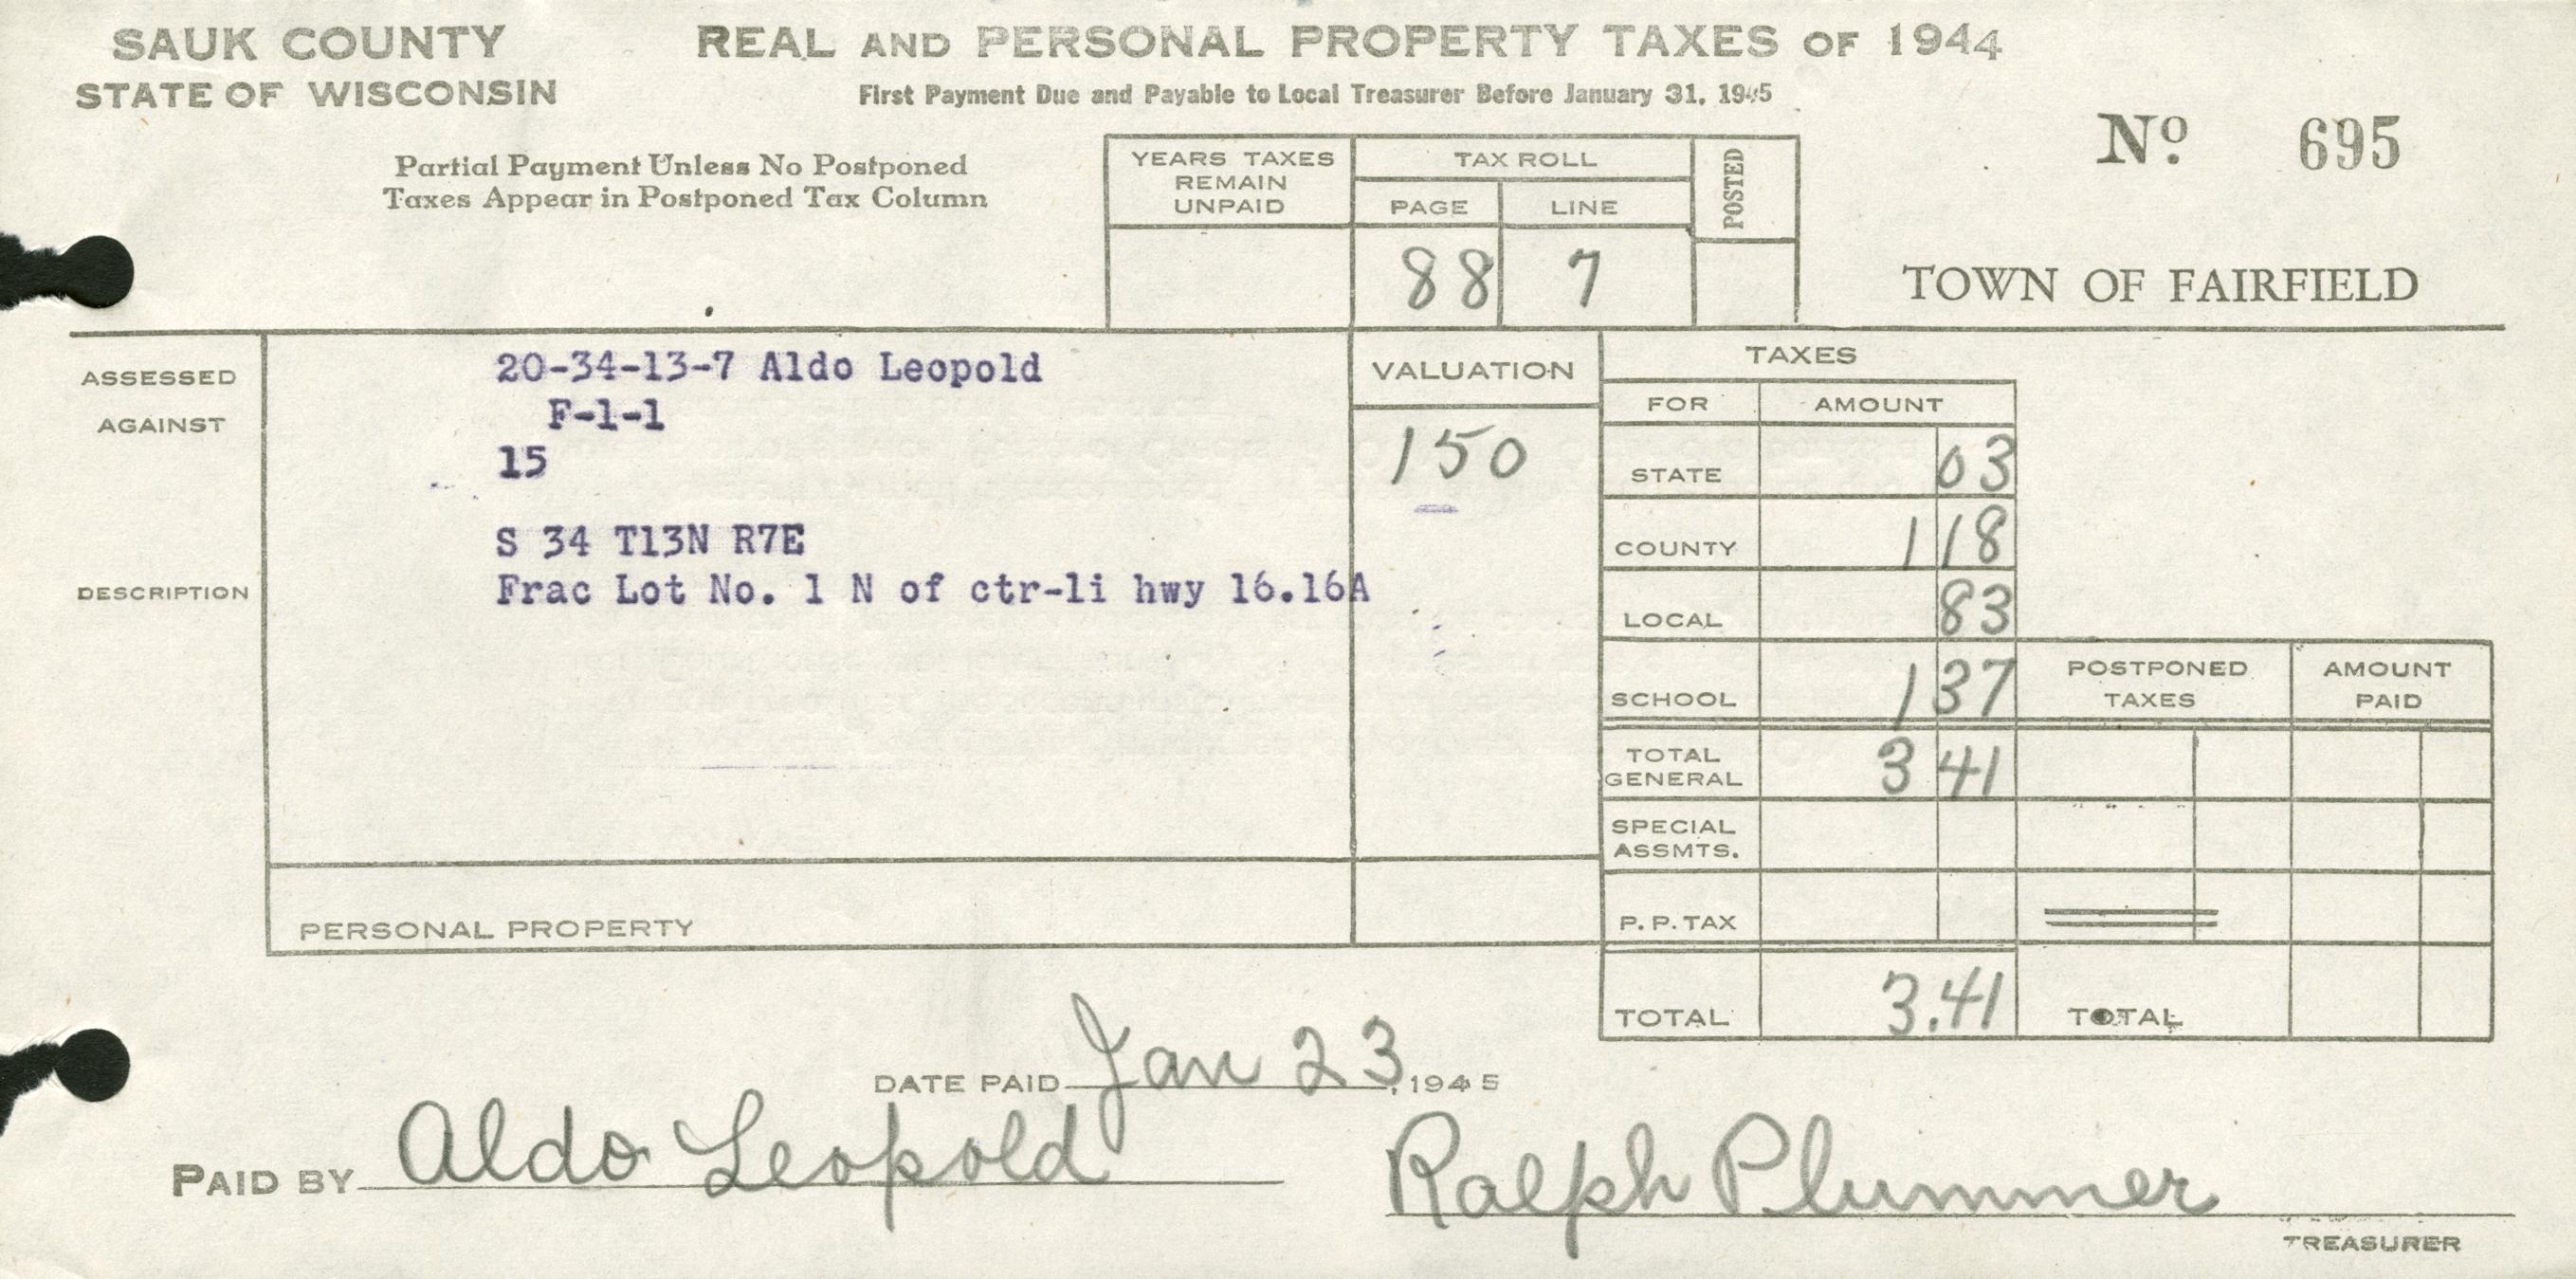 SAUK COUNTY
STATE OF WISCONSIN
REAL AND PERSONAL PROPERTY TAXES OF 1944
First Payment Due and Payable to Local Treasurer Before January 31, 1945
Partial Payment Unless No Postponed
Taxes Appear in Postponed Tax Column
YEARS TAXES
REMAIN
UNPAID
TAX ROLL
PAGE LINE
POSTED
88 7
Nº 695
TOWN OF FAIRFIELD
ASSESSED
AGAINST
20-34-13-7 Aldo Leopold
F-1-1
15
DESCRIPTION
S 34 T13N R7E
Frac Lot No. 1 N of ctr-li hwy 16.16A
PERSONAL PROPERTY
VALUATION
150
TAXES
FOR AMOUNT
STATE 03
COUNTY 1 18
LOCAL 83
SCHOOL 1 37
POSTPONED
TAXES
AMOUNT
PAID
TOTAL
GENERAL 3 41
SPECIAL
ASSMTS.
P. P. TAX
TOTAL 3.41 TOTAL
DATE PAID Jan 23, 1945
PAID BY Aldo Leopold
Ralph Plummer
TREASURER